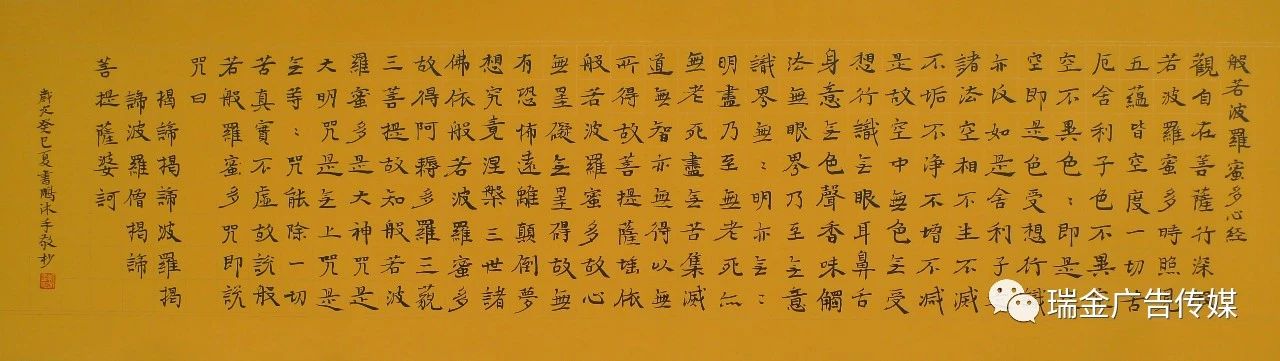 般若波羅蜜多心經
觀自在菩薩行深
若波羅蜜多時照見
五蘊皆空度一切苦
厄舍利子色不異
空不異色：即是
空即是色受想行識
亦復如是舍利子
諸法空相不生不滅
不垢不淨不增不减
是故空中無色无受
想行識无眼耳鼻舌
身意无色聲香味觸
法無眼界乃至无意
識界無：明亦无：
明盡乃至無老死亦
無老死盡无苦集滅
道無智亦無得以無
所得故菩提薩埵依
般若波羅蜜多故心
無罣礙无罣碍故無
有恐怖遠離顛倒夢
想究竟涅槃三世諸
佛依般若波羅蜜多
故得阿耨多羅三藐
三菩提故知般若波
羅蜜多是大神咒是
大明咒是无上咒是
无等：咒能除一切
苦真實不虛故說般
若般羅蜜多咒即説
咒曰
揭諦揭諦波羅揭
諦波羅僧揭諦
菩提薩婆訶
癸巳夏書鵬沐手敬抄
瑞金广告传媒